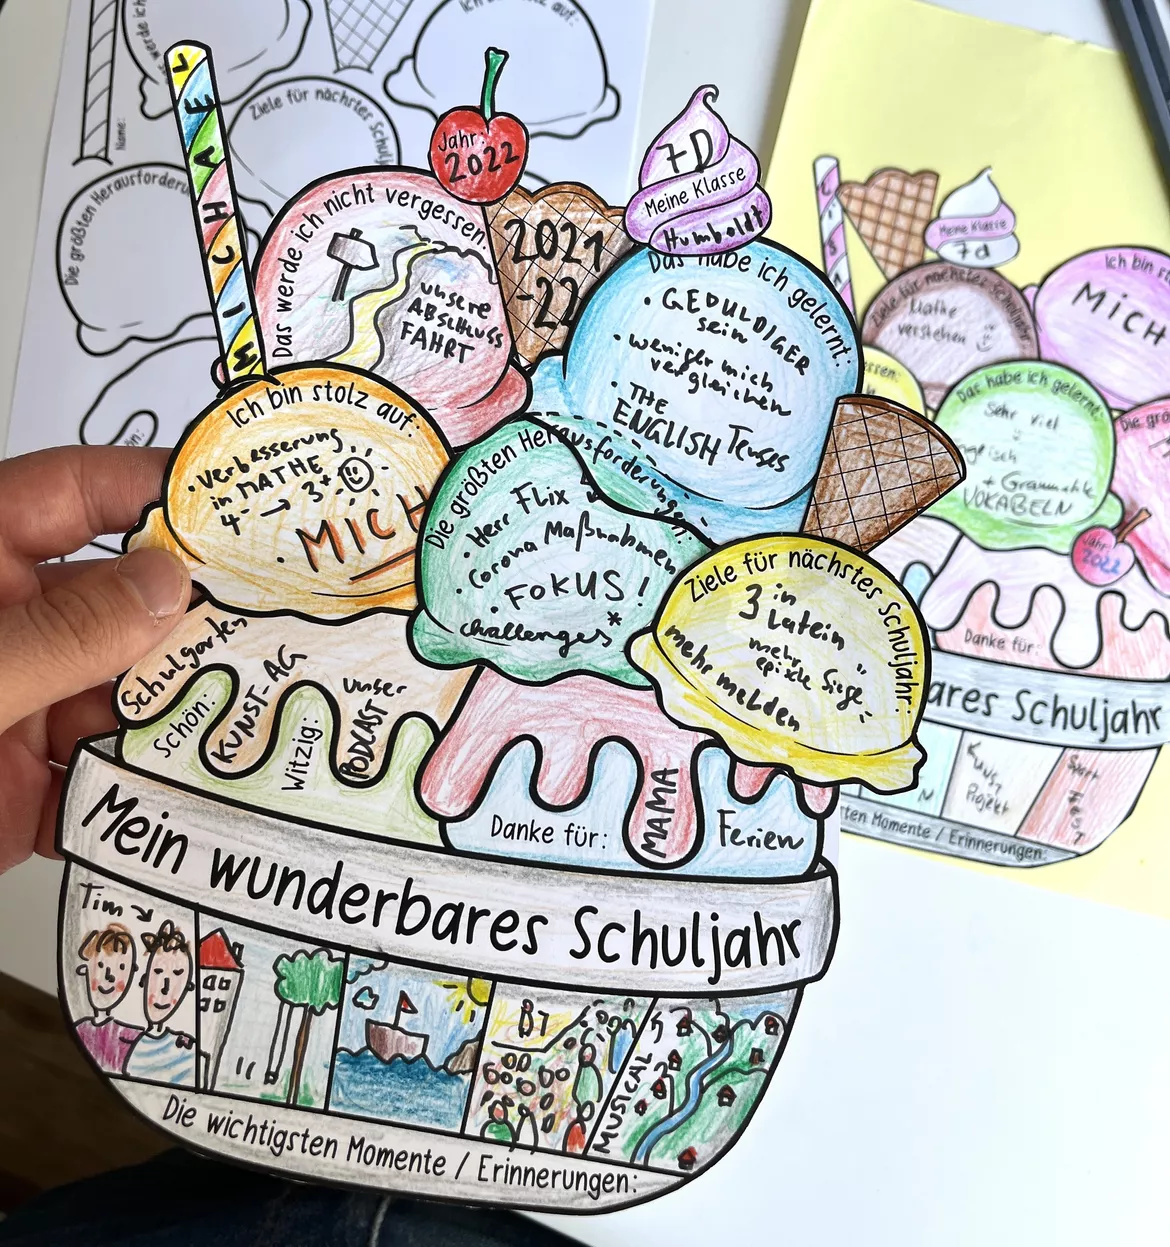 Ich bin stolz auf:
Ziele für nächstes Schulj
Name:
Die größten Herausforderu
MICHAEL
Jahr:
2022
7D
Meine Klasse
Humboldt
2021
-22
Das werde ich nicht vergessen:
unsere
ABSCHLUSS
FAHRT
Das habe ich gelernt:
• GEDULDIGER
sein
• weniger mich
vergleichen
• THE
ENGLISH Tenses
Ich bin stolz auf:
• Verbesserung
in MATHE
4- → 3+
• MICH
Die größten Herausforderungen:
• Herr Flix
• Corona Maßnahmen
• FOKUS!
challenges*
Ziele für nächstes Schuljahr:
3 in
Latein
mehr
epische Siege
mehr melden
Schulgarten
Schön:
KUNST-AG
Witzig:
unser
PODCAST
Danke für:
MAMA
Ferien
Mein wunderbares Schuljahr
Tim
B7
MUSICAL
Die wichtigsten Momente / Erinnerungen:
Meine Klasse
7d
Ziele für nächstes Schuljahr
Mathe
verstehen
Ich bin st
MICH
ssen:
Das habe ich gelernt:
Sehr viel
+ Grammatik
VOKABELN
Die grö
Jahr:
2022
Danke für:
ares Schuljahr
Kunst
Projekt
ten Momente / Erinnerungen: